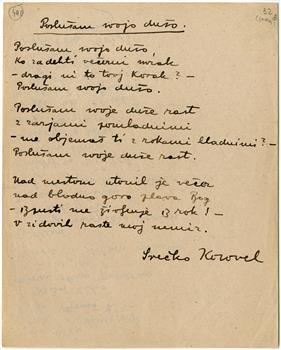 Poslušam tvojo dušo.
Poslušam tvojo dušo,
ko zadehti večerni mrak
- dragi ni to tvoj korak? -
Poslušam tvojo dušo.
Poslušam tvoje duše rast
z zarjami pomladnimi
- me objemaš ti z rokami hladnimi? -
Poslušam tvoje duše rast.
Nad mestom utonil je večer
nad bledo goro plava Bog
- izpusti me življenje iz rok! -
V zidovih raste moj nemir.
Srečko Kosovel